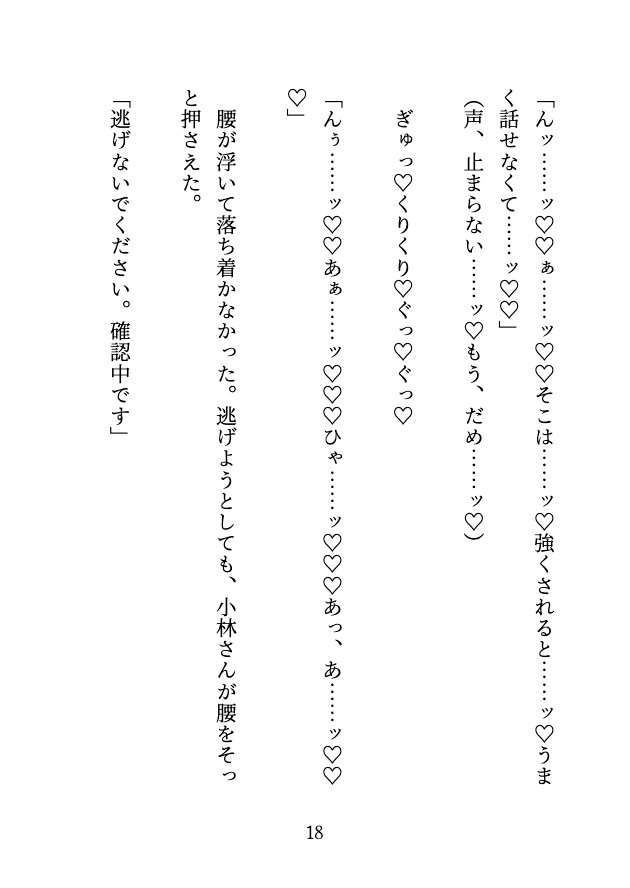 「んッ……ッ♡♡ぁ……ッ♡♡そこは……ッ♡強くされると……ッ♡うま
く話せなくて……ッ♡♡」
(声、止まらない……ッ♡もう、だめ……ッ♡)
ぎゅっ♡くりくり♡ぐっ♡ぐっ♡
「んぅ……ッ♡♡あぁ……ッ♡♡♡ひゃ……ッ♡♡♡あっ、あ……ッ♡♡
♡」
腰が浮いて落ち着かなかった。逃げようとしても、小林さんが腰をそっ
と押さえた。
「逃げないでください。確認中です」
18